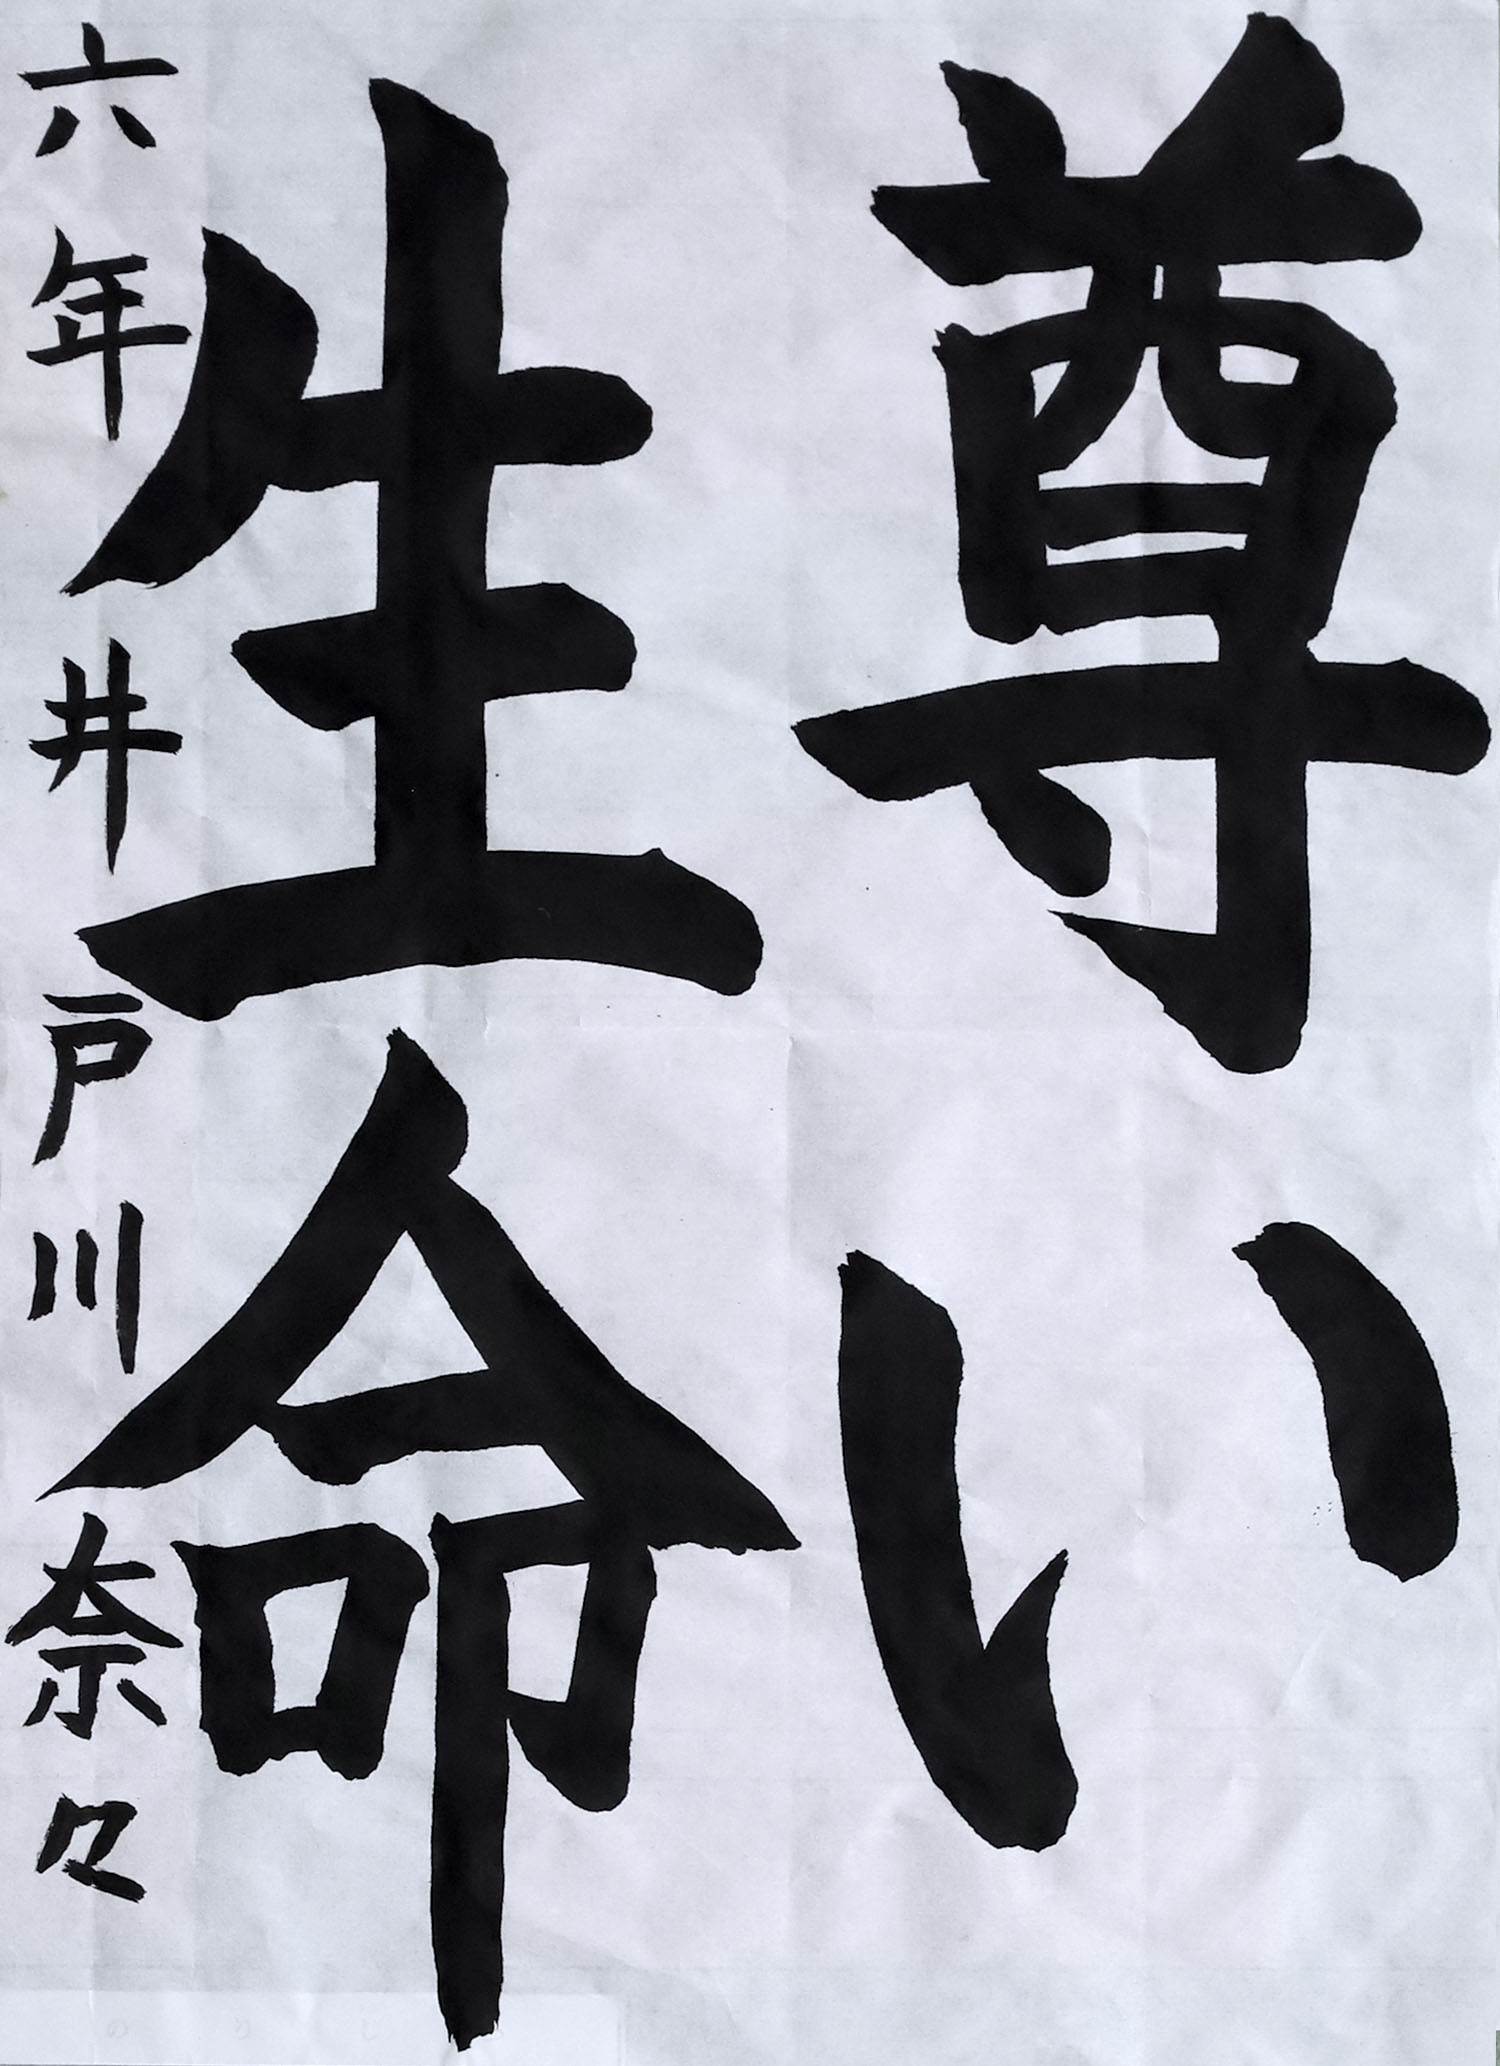 尊い
生命
六年井戸川奈々